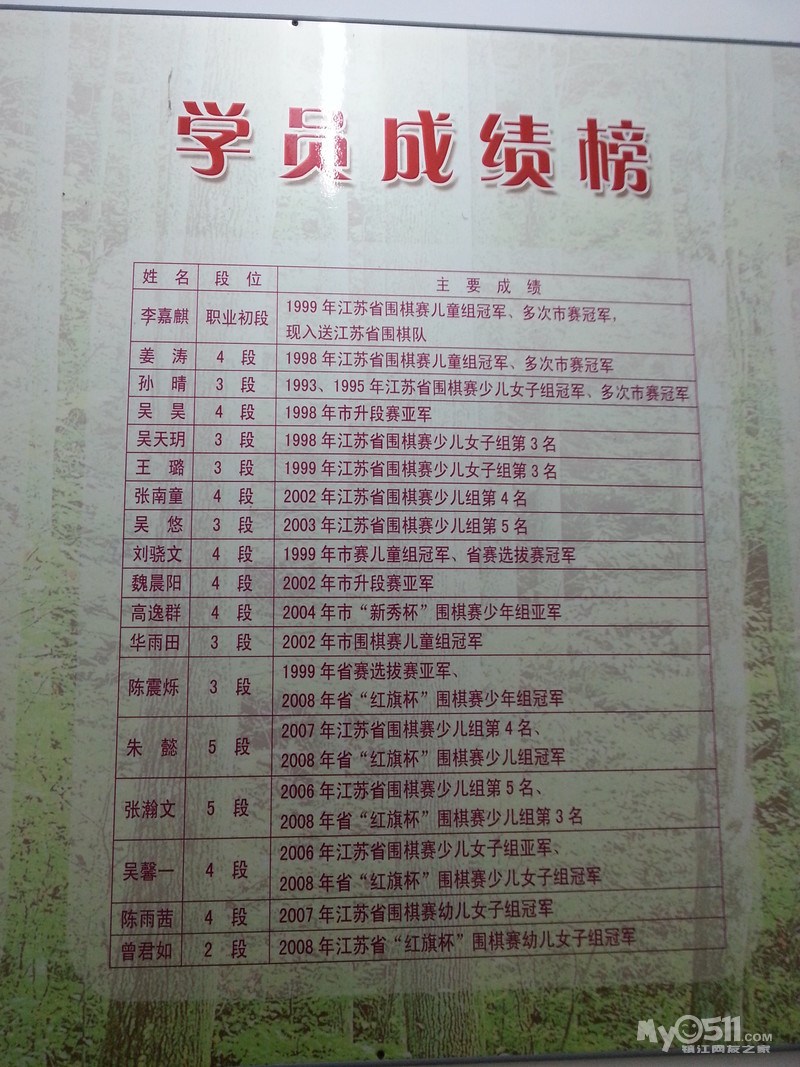 学员成绩榜
姓 名 段 位 主 要 成 绩
李嘉麒 职业初段 1999年江苏省围棋赛儿童组冠军、多次市赛冠军,
现入送江苏省围棋队
姜 涛 4 段 1998年江苏省围棋赛儿童组冠军、多次市赛冠军
孙 晴 3 段 1993、1995年江苏省围棋赛少儿女子组冠军、多次市赛冠军
吴 昊 4 段 1998年市升段赛亚军
吴天玥 3 段 1998年江苏省围棋赛少儿女子组第3名
王 璐 3 段 1999年江苏省围棋赛少儿女子组第3名
张南童 4 段 2002年江苏省围棋赛少儿组第4名
吴 悠 3 段 2003年江苏省围棋赛少儿组第5名
刘骁文 4 段 1999年市赛儿童组冠军、省赛选拔赛冠军
魏晨阳 4 段 2002年市升段赛亚军
高逸群 4 段 2004年市“新秀杯”围棋赛少年组亚军
华雨田 3 段 2002年市围棋赛儿童组冠军
陈震烁 3 段 1999年省赛选拔赛亚军、
2008年省“红旗杯”围棋赛少年组冠军
朱 懿 5 段 2007年江苏省围棋赛少儿组第4名、
2008年省“红旗杯”围棋赛少儿组冠军
张瀚文 5 段 2006年江苏省围棋赛少儿组第5名、
2008年省“红旗杯”围棋赛少儿组第3名
吴馨一 4 段 2006年江苏省围棋赛少儿女子组亚军、
2008年省“红旗杯”围棋赛少儿女子组冠军
陈雨茜 4 段 2007年江苏省围棋赛幼儿女子组冠军
曾君如 2 段 2008年江苏省“红旗杯”围棋赛幼儿女子组冠军
My0511.COM
镇江网友之家